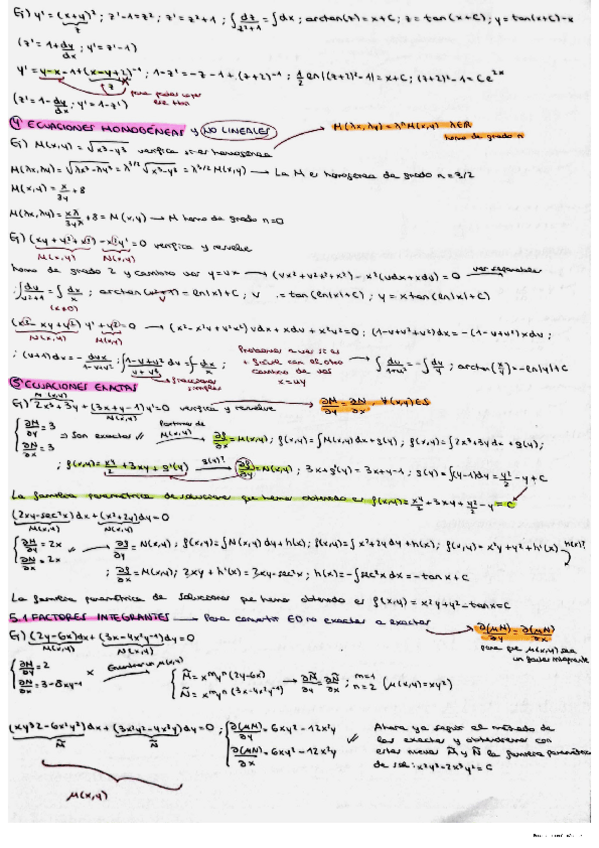 Ej) y' = (x+y)²; z'-1=z²; z'=z²+1; ∫dz/z²+1 = ∫dx; arctan(z)=x+C; z=tan(x+C); y=tan(x+C)-x
z
(z'=1+dy/dx; y'=z'-1)
y' = y-x-1+(x-y+2)⁻¹; 1-z'=-z-1+(z+2)⁻¹; ½ln|(z+2)²-1|=x+C; (z+2)²-1=Ce²ˣ
z
para poder coger
(z'=1-dy/dx; y'=1-z')
④ ECUACIONES HOMOGÉNEAS y NO LINEALES
M(λx,λy)=λⁿM(x,y) λ∈R
homo de grado n
Ej) M(x,y)=√x³-y³ verifica si es homogénea
M(λx,λy)=√λx³-λy³=λ^3/2 √x³-y³=λ^3/2 M(x,y) → La M es homogénea de grado n=3/2
M(x,y)=x/3y+8
M(λx,λy)=xλ/3yλ+8=M(x,y) → M homo de grado n=0
Ej) (xy+y²+x²)-x²y'=0 verifica y resuelve
M(x,y) N(x,y)
homo de grado 2 y cambio var y=vx → (vx²+v²x²+x²)-x²(vdx+xdv)=0 var separables
; ∫dv/v²+1=∫dx/x; arctan(v)=ln|x|+C; v=tan(ln|x|+C); y=xtan(ln|x|+C)
(x≠0)
(x²-xy+y²) y'+y²=0 → (x²-x²v+v²x²)vdx+xdv+x²v²=0; (1-v+v²+v²)dx=-(1-v+v²)xdv;
N(x,y) M(x,y)
; (v+1)dx=-dvx/1-v+v²; ∫1-v+v²/v+v³ dv=∫-dx/x;
Probamos a ver si es
+ fácil con el otro
cambio de var
x=uy
→ ∫du/1+u²=-∫dy/y; arctan(x/y)=-ln|y|+C
fracciones
simples
⑤ ECUACIONES EXACTAS
M(x,y)
Ej) 2x³+3y+(3x+y-1)y'=0 verifica y resuelve → ∂M/∂y=∂N/∂x, ∀(x,y)∈S
N(x,y)
{∂M/∂y=3
∂N/∂x=3 ⇒ Son exactas Partimos de M(x,y) → ∂f/∂x=M(x,y); f(x,y)=∫M(x,y)dx+g(y); f(x,y)=∫2x³+3ydx+g(y);
; f(x,y)=x⁴/2+3xy+g'(y) g(y)? ∂f/∂y=N(x,y); 3x+g'(y)=3x+y-1; g(y)=∫(y-1)dy=y²/2-y+C
La familia paramétrica de soluciones que hemos obtenido es f(x,y)=x⁴/2+3xy+y²/2-y=C
(2xy-sec²x)dx+(x²+2y)dy=0
M(x,y) N(x,y)
{∂M/∂y=2x
∂N/∂x=2x → ∂f/∂y=N(x,y); f(x,y)=∫N(x,y)dy+h(x); f(x,y)=∫x²+2ydy+h(x); f(x,y)=x²y+y²+h'(x) h(x)?
; ∂f/∂x=M(x,y); 2xy+h'(x)=2xy-sec²x; h(x)=-∫sec²x dx=-tanx+C
La familia paramétrica de soluciones que hemos obtenido es f(x,y)=x²y+y²-tanx=C
5.1 FACTORES INTEGRANTES → Para convertir ED no exactas a exactas
∂(μM)/∂y=∂(μN)/∂x
para que μ(x,y) sea
un factor integrante
Ej) (2y-6x)dx+(3x-4x²y⁻¹)dy=0
M(x,y) N(x,y)
{∂M/∂y=2
∂N/∂x=3-8xy⁻¹ x Encontrar un μ(x,y) {M̃=xᵐyⁿ(2y-6x)
Ñ=xᵐyⁿ(3x-4x²y⁻¹) → ∂M̃/∂y=∂Ñ/∂x; m=1; n=2 (μ(x,y)=xy²)
(xy³2-6x²y²)dx+(3x²y²-4x³y)dy=0; {∂(μM)/∂y=6xy²-12x²y
M̃ Ñ
∂(μN)/∂x=6xy²-12x²y ✓
Ahora ya seguir el método de
las exactas y obtendremos con
estas nuevas M̃ y Ñ la familia paramétrica
de sol: x²y³-2x³y²=C
μ(x,y)